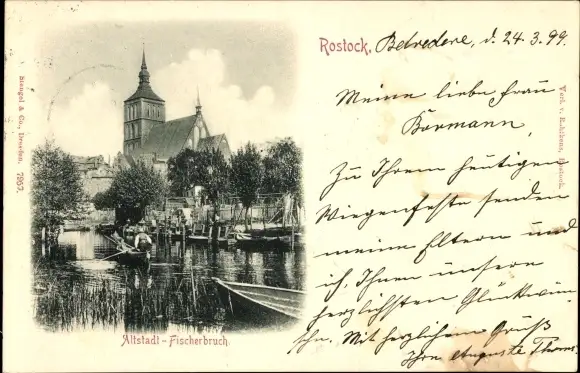 Rostock, Belvedere, d. 24.3.99.
Meine liebe Frau
Bormann,
Zu Ihrem heutigen
Wiegenfeste senden
meine Eltern und
ich, Ihnen unsere
herzlichsten Glückwün
sche. Mit herzlichem Gruß
Ihre Auguste
Altstadt - Fischerbruch.
Stengel & Co., Dresden. 7957.
Verl. v. Rostock.